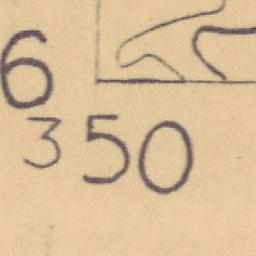 6
350